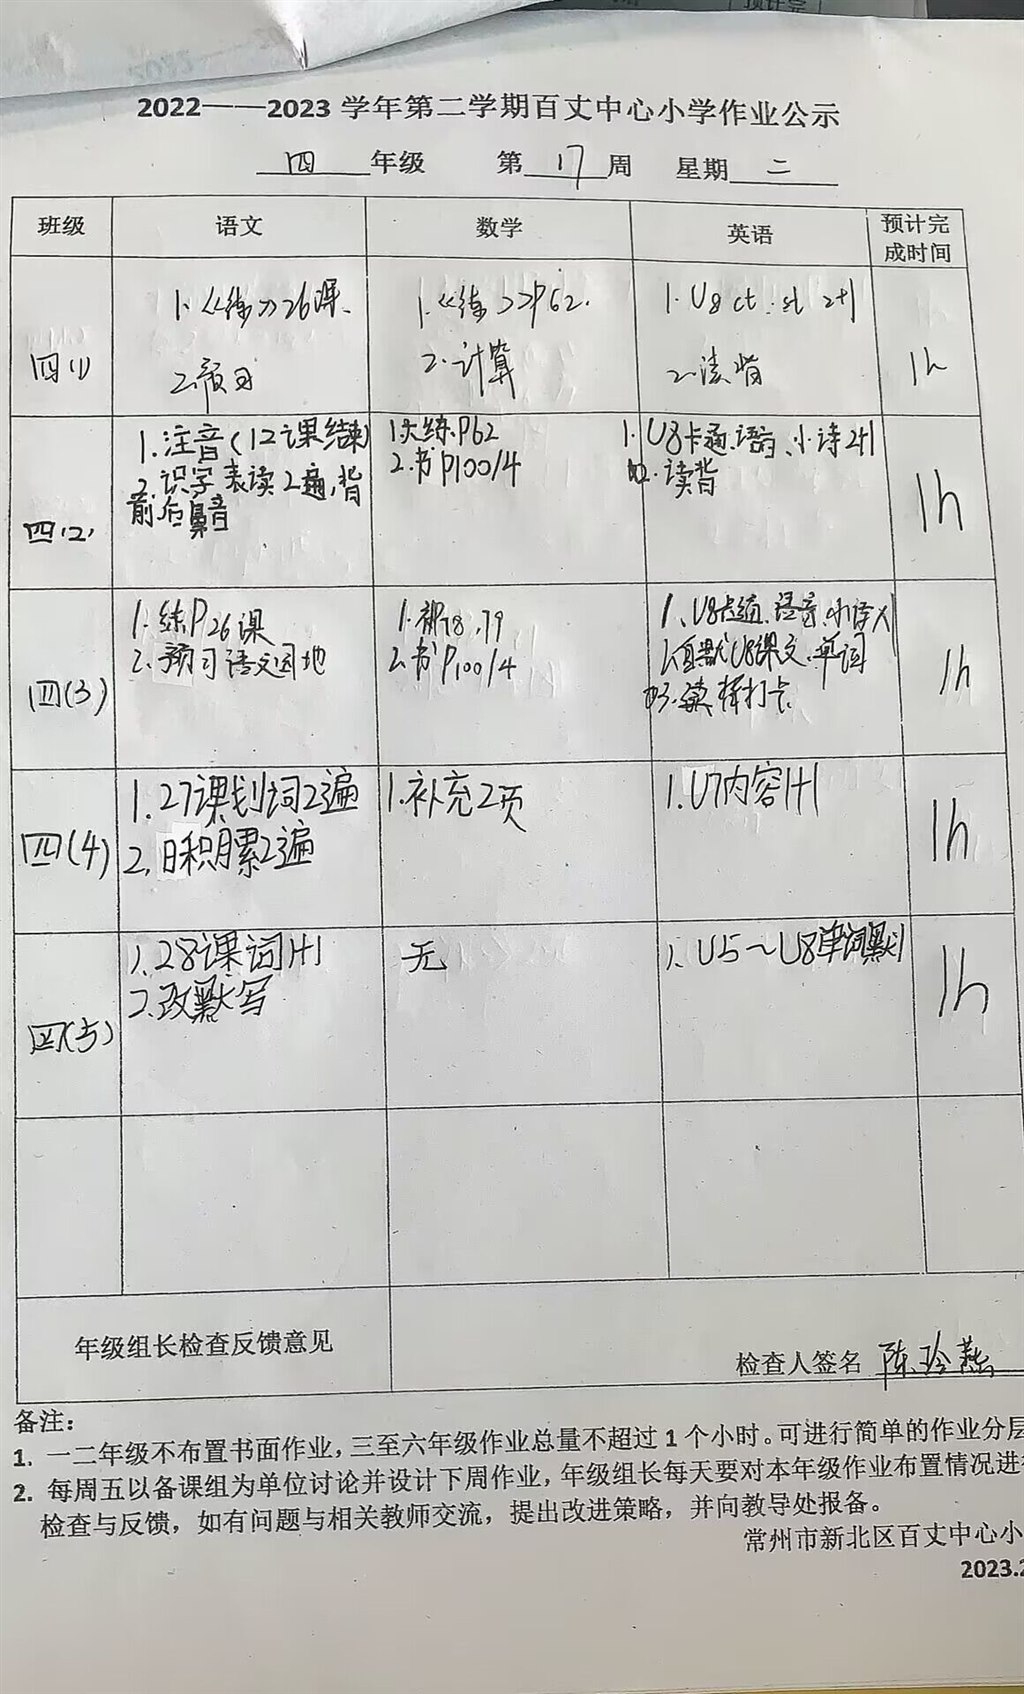 预计完
2022——2023 学年第二学期百丈中心小学作业公示
四 年级 第 17 周 星期 二
班级 语文 数学 英语 预计完成时间
四(1)
1.《练》26课、
2.预习
1.《练》P62.
2.计算
1.U8 ct. st 2+1
2.读背
1h
四(2)
1.注音(12课结束)
2.识字表读2遍,背
前后鼻音
1.大练P62
2.书P100/4
1.U8卡通.语音、小诗2+1
2.读背
1h
四(3)
1.练P26课
2.预习语文园地
1.补78,79
2.书P100/4
1、U8卡通、语音、小诗
2.自默U8课文、单词
3.读 打卡
1h
四(4)
1.27课划词2遍
2.日积月累2遍
1.补充2页
1.U7内容1+1
1h
四(5)
1.28课词1+1
2.改默写
无
1、U5~U8单词默1
1h
年级组长检查反馈意见
检查人签名 陈玲燕
备注:
1. 一二年级不布置书面作业,三至六年级作业总量不超过 1 个小时。可进行简单的作业分层
2. 每周五以备课组为单位讨论并设计下周作业,年级组长每天要对本年级作业布置情况进行
检查与反馈,如有问题与相关教师交流,提出改进策略,并向教导处报备。
常州市新北区百丈中心小
2023.2